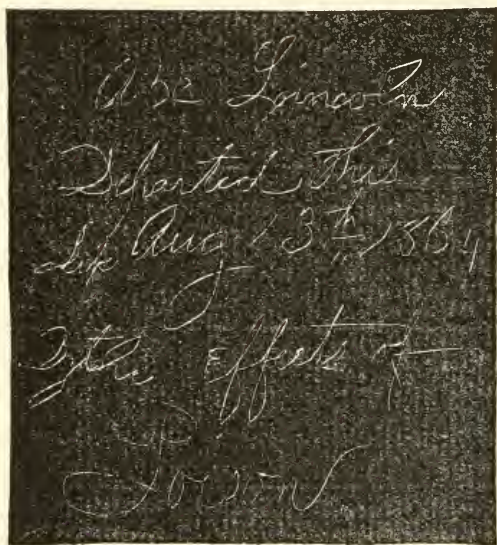 Abe Lincoln
Departed this
Life Aug 13th, 1864
By the Effects of
Poison